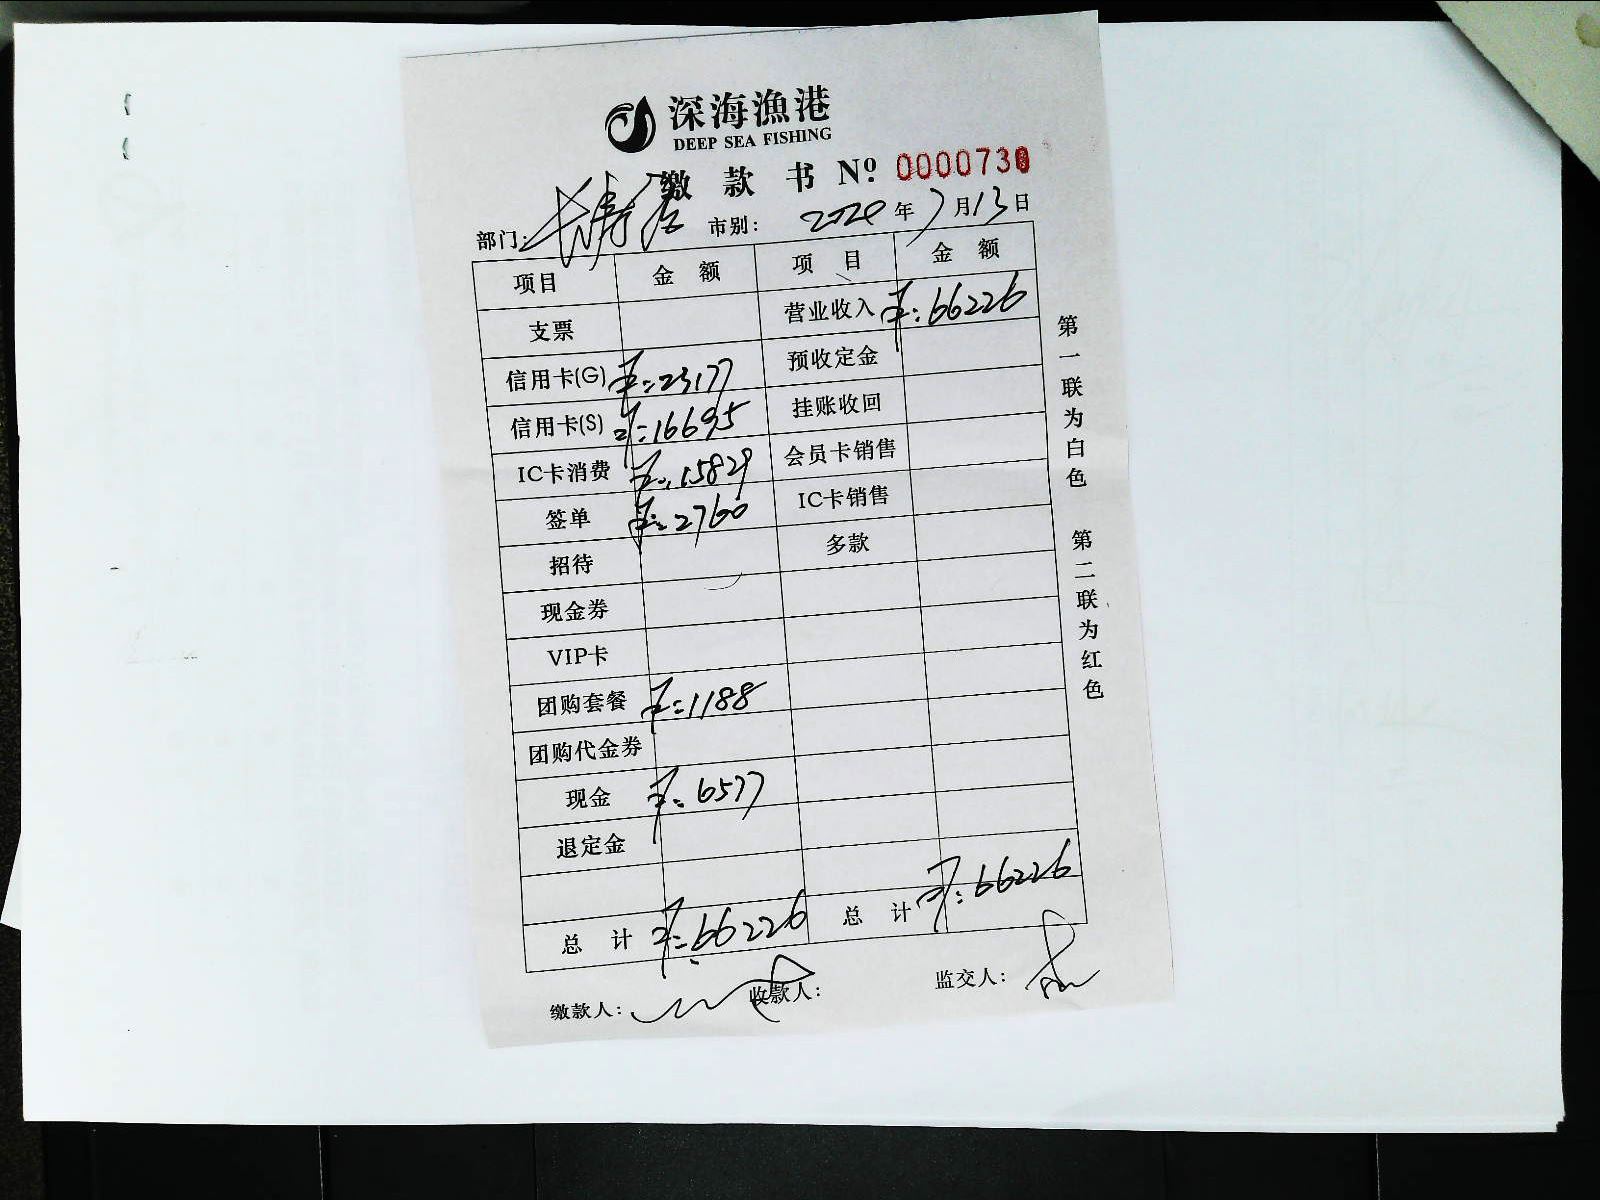 深海漁港
DEEP SEA FISHING
缴款书 Nº 0000730
部门: 市别: 2020年7月13日
项目 金额 项目 金额
支票 营业收入 ¥:66226
信用卡(G) ¥:23177 预收定金
信用卡(S) ¥:16695 挂账收回
IC卡消费 ¥:15829 会员卡销售
签单 ¥:2760 IC卡销售
招待 多款
现金券
VIP卡
团购套餐 ¥:1188
团购代金券
现金 ¥:6577
退定金
总计 ¥:66226 总计 ¥:66226
缴款人: 收款人: 监交人:
第一联为白色 第二联为红色